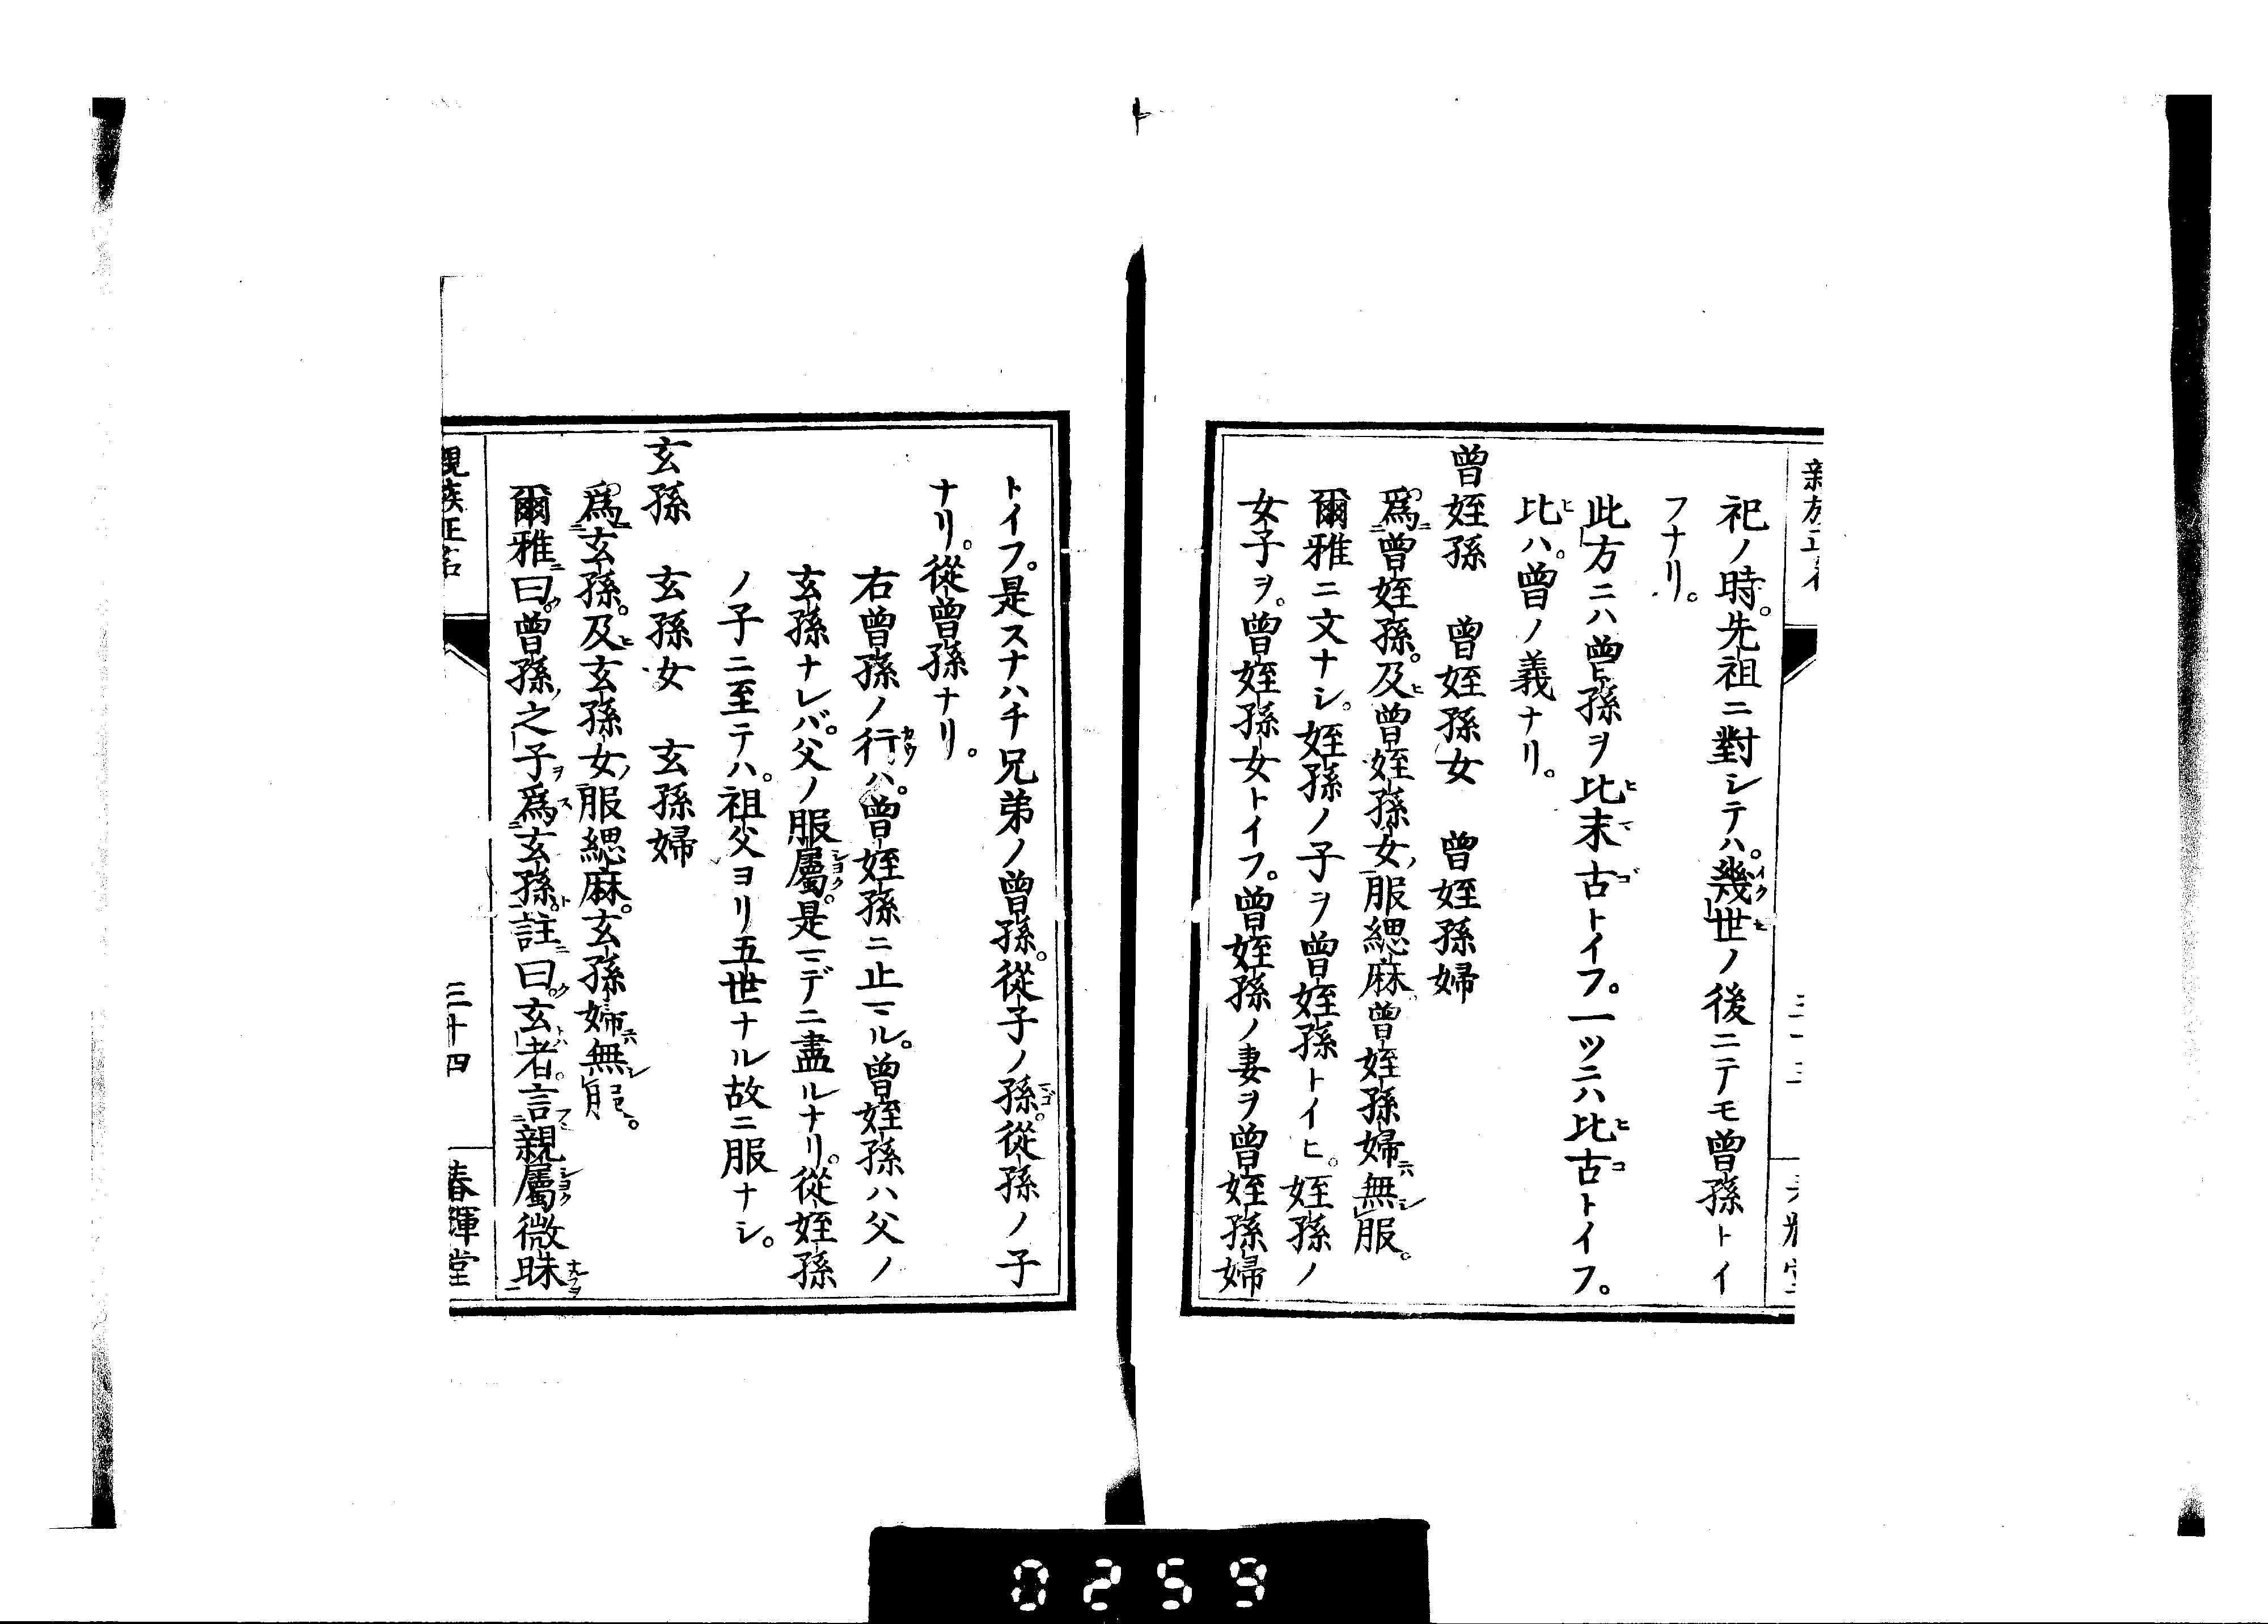 祀ノ時。先祖ニ對シテハ。幾世ノ後ニテモ曾孫トイ
フナリ。
此方ニハ曾孫ヲ比末古トイフ。一ツニハ比古トイフ。
比ハ。曾ノ義ナリ。
曾姪孫 曾姪孫女 曾姪孫婦
爲曾姪孫。及曾姪孫女服緦麻曾姪孫婦無服。
爾雅ニ文ナシ。姪孫ノ子ヲ曾姪孫トイヒ。姪孫ノ
女子ヲ。曾姪孫女トイフ。曾姪孫ノ妻ヲ曾姪孫婦
トイフ。是スナハチ兄弟ノ曾孫。從子ノ孫。從孫ノ子
ナリ。從曾孫ナリ。
右曾孫ノ行ハ。曾姪孫ニ止マル。曾姪孫ハ父ノ
玄孫ナレバ。父ノ服屬。是マデニ盡ルナリ。從姪孫
ノ子ニ至テハ。祖父ヨリ五世ナル故ニ服ナシ。
玄孫 玄孫女 玄孫婦
爲玄孫。及玄孫女服緦麻。玄孫婦無服。
爾雅曰。曾孫之子爲玄孫。註曰。玄者。言親屬微昧
親族正名 三十四 春暉堂
0259